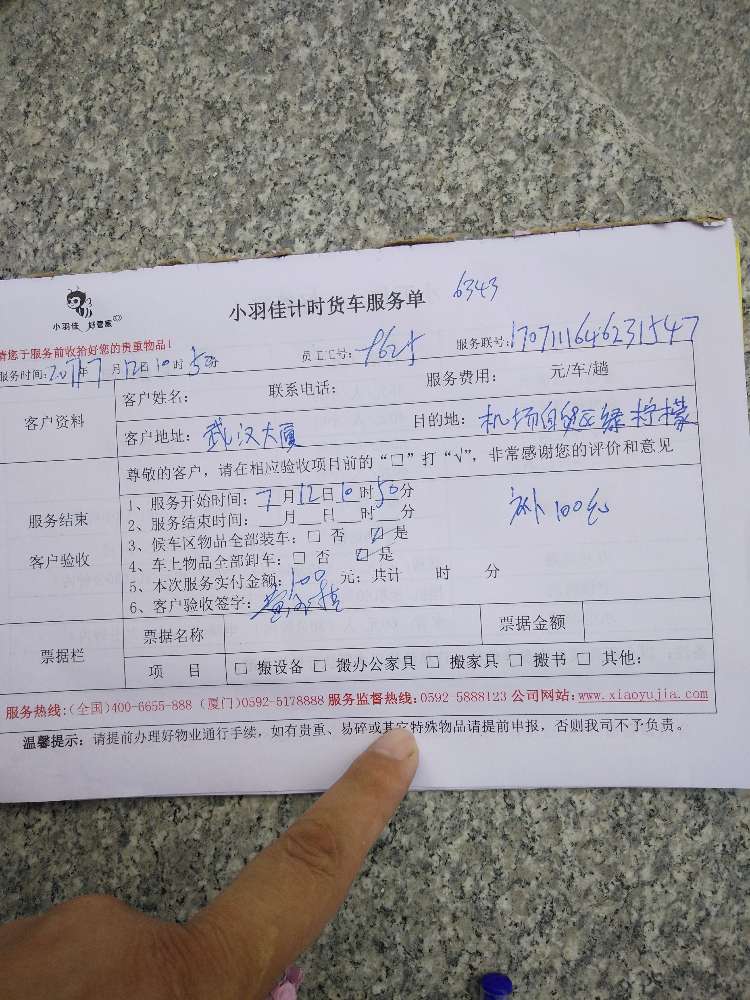 小羽佳 好管家
小羽佳计时货车服务单 6343
请您于服务前收拾好您的贵重物品！
服务时间: 年7月12日10时50分 员工工号: 9625 服务联号:
客户资料
客户姓名: 联系电话: 服务费用: 元/车/趟
客户地址: 武汉大厦 目的地: 机场自贸区绿柠檬
服务结束
客户验收
尊敬的客户，请在相应验收项目前的“□”打“√”，非常感谢您的评价和意见
1、服务开始时间: 7月12日10时50分
2、服务结束时间: __月__日__时__分
3、候车区物品全部装车: □ 否 ☑ 是
4、车上物品全部卸车: □ 否 ☑ 是
5、本次服务实付金额: 100 元; 共计 时 分
6、客户验收签字:
补100元
票据栏
票据名称 票据金额
项 目 □ 搬设备 □ 搬办公家具 □ 搬家具 □ 搬书 □ 其他:
服务热线:(全国)400-6655-888 (厦门)0592-5178888 服务监督热线:0592-5888123 公司网站:www.xiaoyujia.com
温馨提示: 请提前办理好物业通行手续，如有贵重、易碎或其它特殊物品请提前申报，否则我司不予负责。